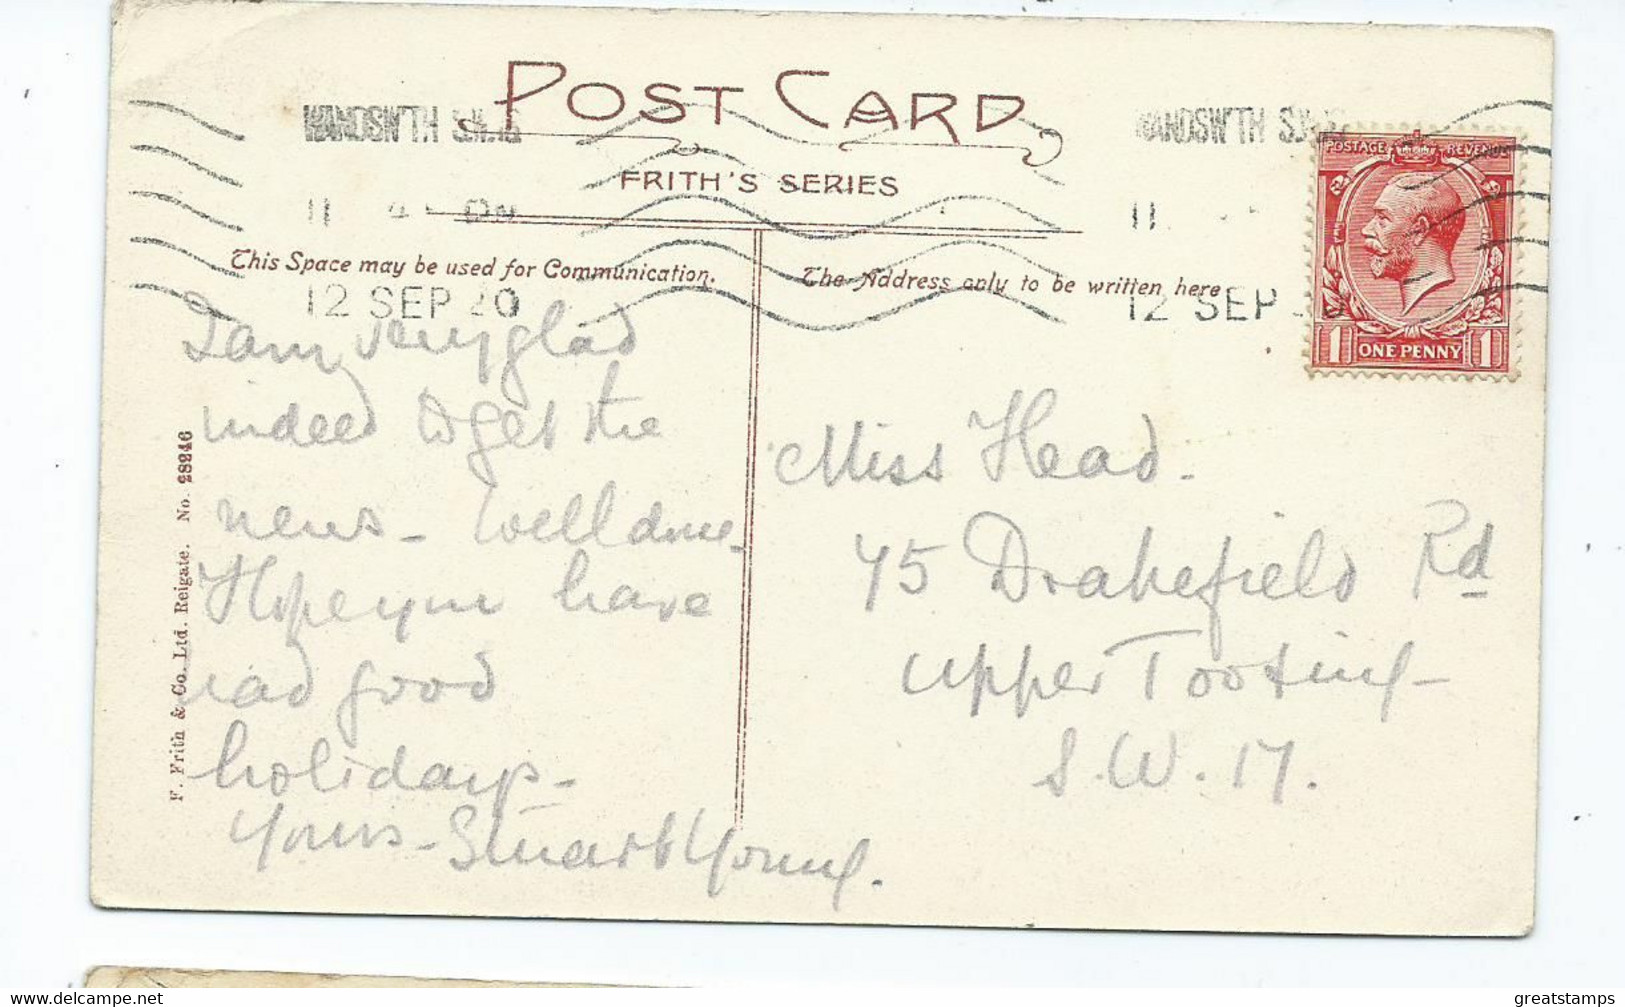 POST CARD
FRITH'S SERIES
WANDSWTH S.W.18
11 45 PM
12 SEP 20
WANDSWTH S.W.
11
12 SEP
POSTAGE REVENUE
1 ONE PENNY 1
This Space may be used for Communication.
The Address only to be written here
I am very glad
indeed to get the
news - Well done.
Hope you have
had good
holidays -
Yours - Stuart Young.
Miss Head -
45 Drakefield Rd
Upper Tooting -
S.W. 17.
F. Frith & Co. Ltd. Reigate. No. 28246
greatstamps